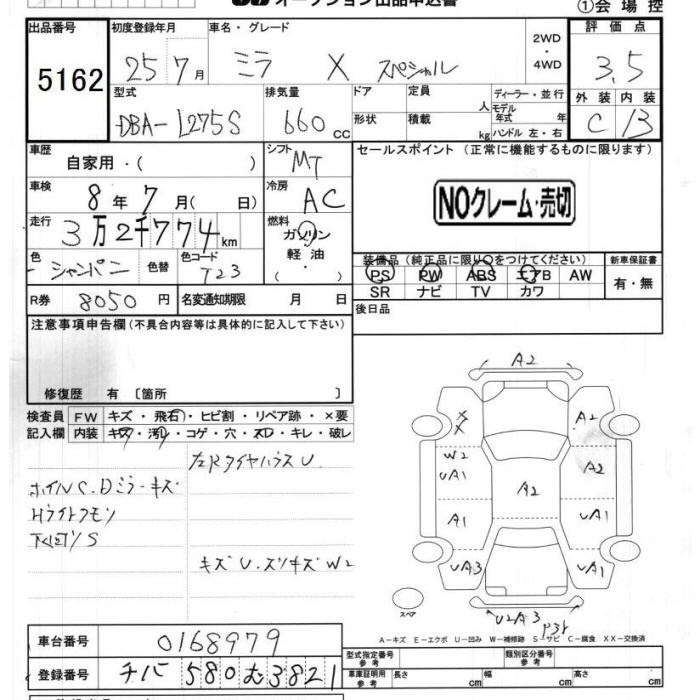 オークション出品申込書
①会場控
出品番号
5162
初度登録年月
25 7月
車名・グレード
ミラ X スペシャル
2WD
・
4WD
評価点
3.5
型式
DBA-L275S
排気量
660cc
ドア
形状
定員 人
積載 kg
ディーラー・並行
モデル年式 年
ハンドル 左・右
外装 内装
C B
車歴
自家用・( )
シフト
MT
セールスポイント (正常に機能するものに限ります)
車検
8年7月( 日)
冷房
AC
NOクレーム・売切
走行
3万2千774km
燃料
ガソリン
軽油
色
シャンパン
色替
色コード
T23
装備品(純正品に限り○をつけてください)
PS PW ABS エアB AW
SR ナビ TV カワ
新車保証書
有・無
R券 8050円
名変通知期限 月 日
後日品
注意事項申告欄(不具合内容等は具体的に記入して下さい)
修復歴 有 〔箇所 〕
検査員記入欄
FW キズ・飛石・ヒビ割・リペア跡・×要
内装 キズ・汚リ・コゲ・穴・スレ・キレ・破レ
左RタイヤハウスU
ホイルC.Dミラーキズ
Hライトクモリ
下回りS
キズU.スリキズW2
A2
XX
A2
W2
UA1
A2
A2
A1
UA1
UA3
UA1
U2A3
スペア
A-キズ E-エクボ U-凹み W-補修跡 S-サビ C-腐食 XX-交換済
車台番号
0168979
登録番号
チバ580む3821
型式指定番号 参考
類別区分番号 参考
車庫証明用 参考
長さ cm
幅 cm
高さ cm